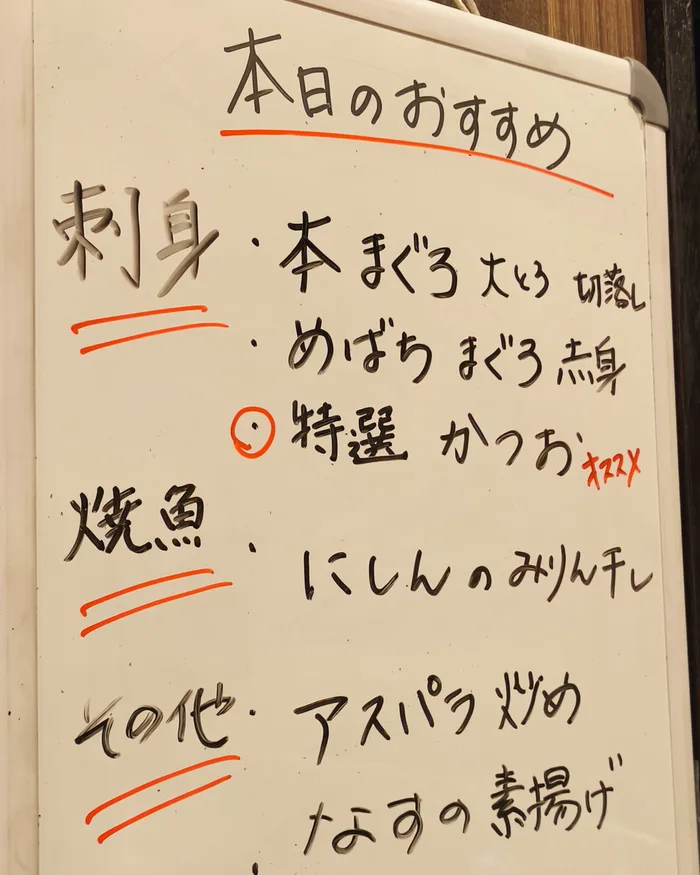 本日のおすすめ
刺身 ・本まぐろ 大とろ 切落し
・めばちまぐろ 赤身
・特選 かつお オススメ
焼魚 ・にしんのみりん干し
その他 ・アスパラ炒め
なすの素揚げ